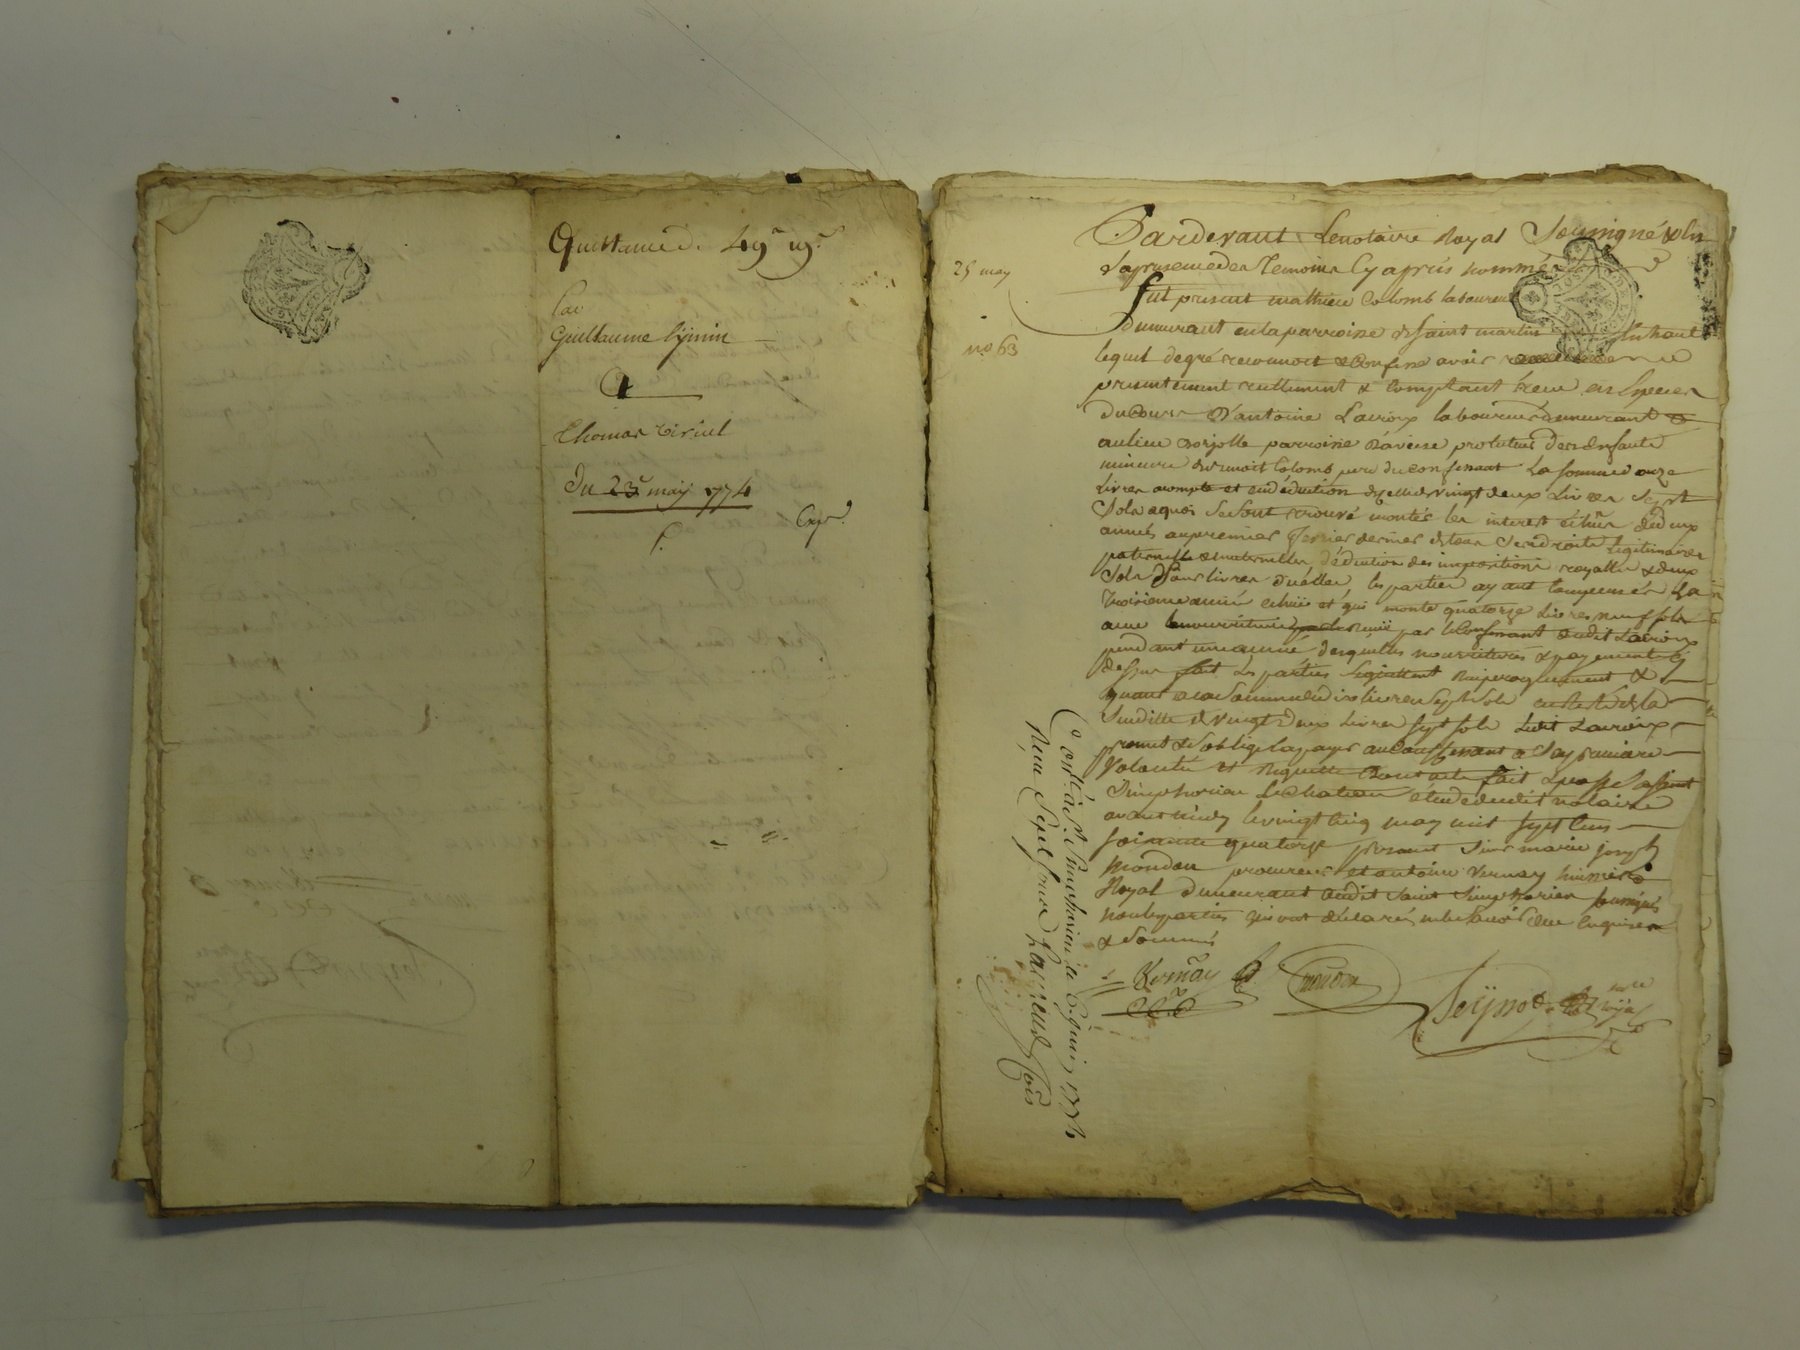 Quittance de 49 19
Par
Guillaume
A
Thomas
Du 23 may 1774
Exp.
25 may
no 63
Pardevant Lenotaire Royal Soussigné & En
La presence des Temoins Cy après nommés
fut present mathieu Colomb laboureur
demeurant en la parroisse de Saint martin En haut
lequel de gré reconnoit & Confesse avoir
presentement reellement & Comptant receu en Especes
du Cours D'antoine Laurioux laboureur demeurant
au lieu parroisse protuteur des Enfants
mineurs de Benoit Colomb pere du Confessant La Somme d'onze
Livres acompte et en déduction de celle de vingt deux Livres Sept
Sols aquoi Se Sont trouvé montés les interest de deux
années au premier dernier de tous Ses droits Legitimaires
paternelle & maternelles déduction des impositions royalles & deux
Sols Pour livres d'icelles, les parties ayant Compensés La
Troisieme année echüe et qui monte quatorze Livres neuf Sols
avec la nourriture par le Confessant dudit Laurioux
pendant une année desquelles nourritures & payement Cy
dessus fait Les parties Se quittent reciproquement &
quant a la Somme de onze livres Sept Sols du reste de la
Susditte de vingt deux Livres Sept Sols Ledit Laurioux
promet & S'oblige la payer au Confessant a Sa premiere
Volonté et Requette Dont acte fait & passé a Saint
Simphorien Le Chateau étude dudit notaire
avant midy le vingt cinq may mil Sept Cens
Soixante quatorze presents Sieur marie joseph
mondon procureur et antoine Vernay huissier
Royal demeurant audit Saint Simphorien soussignés
non les parties qui ont déclaré ne le Savoir de ce Enquises
& Sommés
Vernay
mondon
Con.lé à S.t Simphorien le 6 juin 1774
Reçu Sept Sous